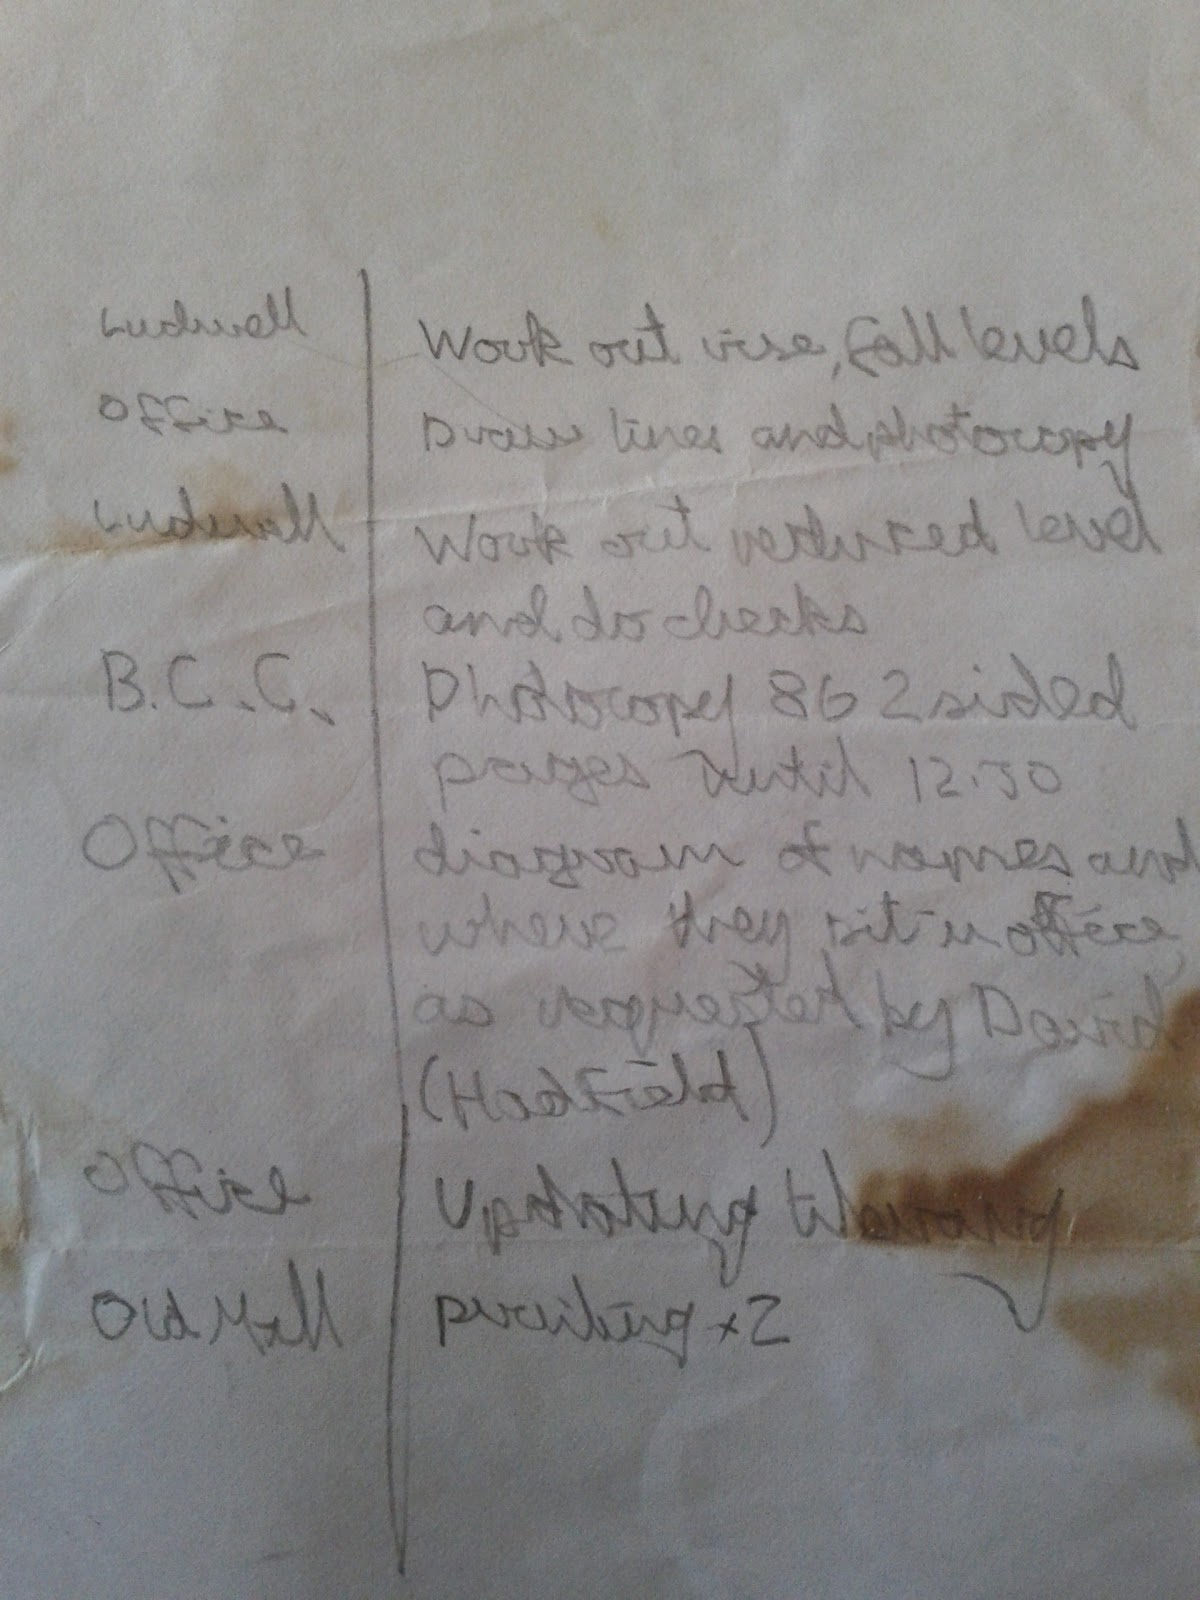 Ludwell Work out rise, fall levels
Office Draw lines and photocopy
Ludwell Work out reduced level
and do checks
B.C.C. Photocopy 86 2 sided
pages until 12.30
Office diagram of names and
where they sit in office,
as requested by David
(Hadfield)
Office Updating library
Old Mill printing x2